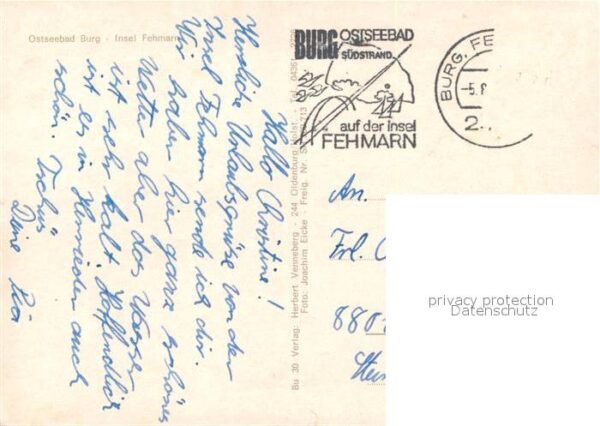 Ostseebad Burg - Insel Fehmarn
Hallo Christine!
Herzliche Urlaubsgrüße von der
Insel Fehmarn sende ich dir.
Wir haben hier ganz schönes
Wetter aber das Wasser
ist sehr kalt. Hoffendlich
ist es in Hennrieden auch
schön. Tschüs
Deine
Bu 30 Verlag: Herbert Venneberg - 244 Oldenburg/Holst. - Tel. 0436
Foto: Joachim Eicke - Freig. Nr.
BURG OSTSEEBAD
SÜDSTRAND
auf der Insel
FEHMARN
BURG, FE
-5.8
2
An.
Frl. C
880
privacy protection
Datenschutz